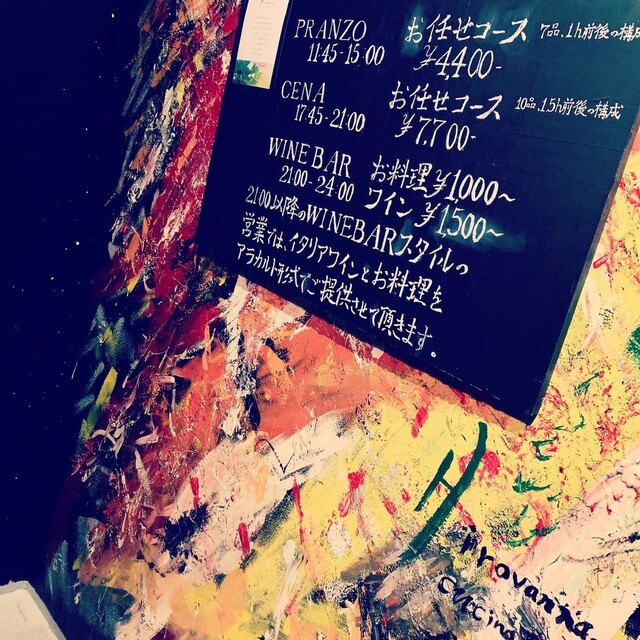 PRANZO お任せコース 7品、1h前後の構成
11:45-15:00 ¥4,400-
CENA お任せコース 10品、1.5h前後の構成
17:45-21:00 ¥7,700-
WINE BAR お料理¥1,000~
21:00-24:00 ワイン ¥1,500~
21:00以降のWINEBARスタイルの
営業では、イタリアワインとお料理を
アラカルト形式でご提供させて頂きます。